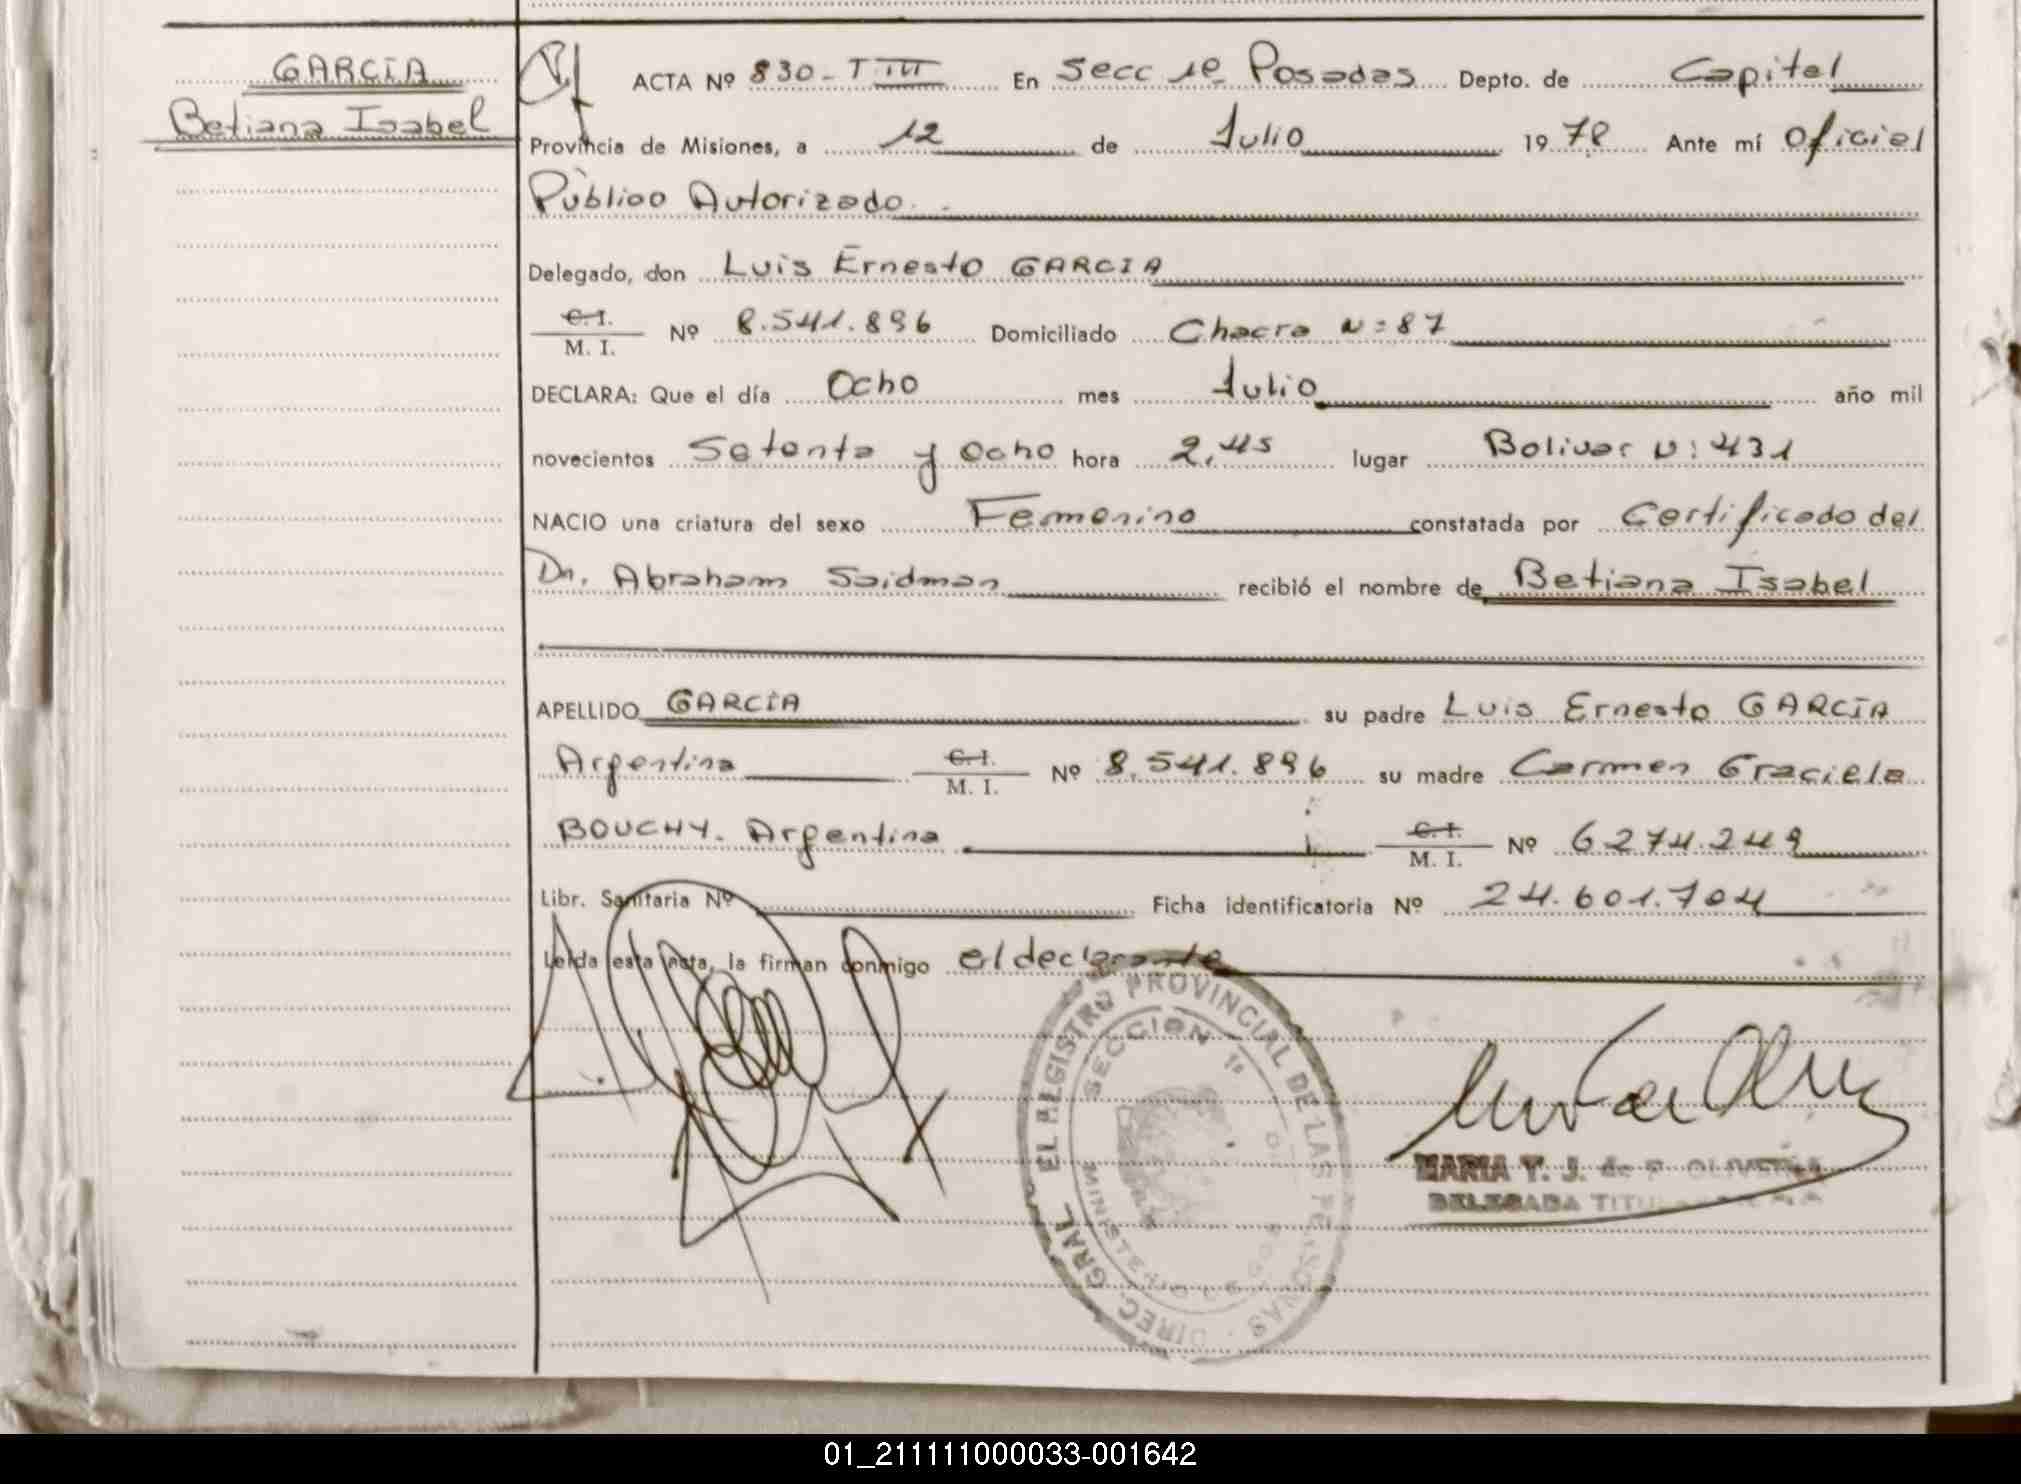 GARCÍA
Betiana Isabel
ACTA Nº 830 - T III En Secc 1º Posadas Depto. de Capital
Provincia de Misiones, a 12 de Julio 1978 Ante mí Oficial
Público Autorizado.
Delegado, don Luis Ernesto GARCIA
C. I.
M. I. Nº 8.541.896 Domiciliado Chacra N: 87
DECLARA: Que el día Ocho mes Julio año mil
novecientos Setenta y Ocho hora 2,45 lugar Bolivar N: 431
NACIO una criatura del sexo Femenino constatada por Certificado del
Dr. Abraham Saidman recibió el nombre de Betiana Isabel
APELLIDO GARCÍA su padre Luis Ernesto GARCÍA
Argentina C. I. M. I. Nº 8.541.896 su madre Carmen Graciela
BOUCHY. Argentina C. I. M. I. Nº 6274.249
Libr. Sanitaria Nº Ficha identificatoria Nº 24.601.704
Leída esta acta, la firman conmigo el declarante
DIREC. GRAL. EL REGISTRO PROVINCIAL DE LAS PERSONAS
SECCION 1º
MINISTERIO DE GOB
MARIA T. J. de F. OLIVEIRA
DELEGADA TITULAR
01_211111000033-001642